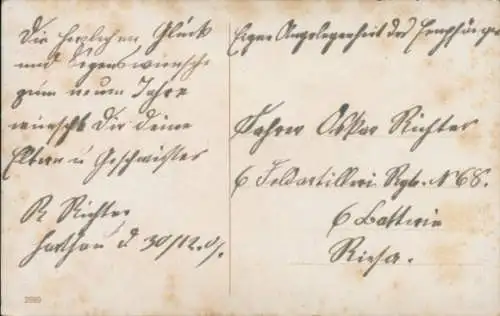 Die herzlichen Glück
und Segenswünsche
zum neuen Jahre
wünscht Dir deine
Eltern u Geschwister
R Richter
Harthau d 30/12.
2980
Eigne Angelegenheit des Empfängers
Fahrer Oskar Richter
6 Feldartillerie Rgt. N 68.
6 Battrie
Riesa.